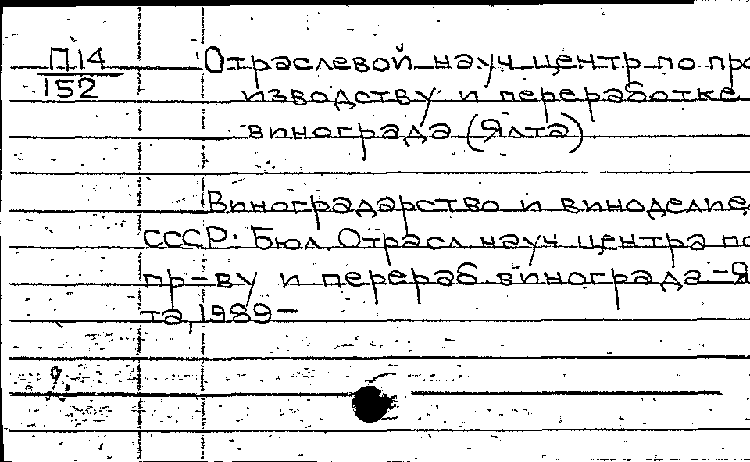 П14
152
Отраслевой науч центр по про
изводству и переработке
винограда (Ялта)
Виноградарство и виноделие
СССР: Бюл. Отрасл. науч центра по
пр-ву и перераб. винограда -Я
та, 1989-